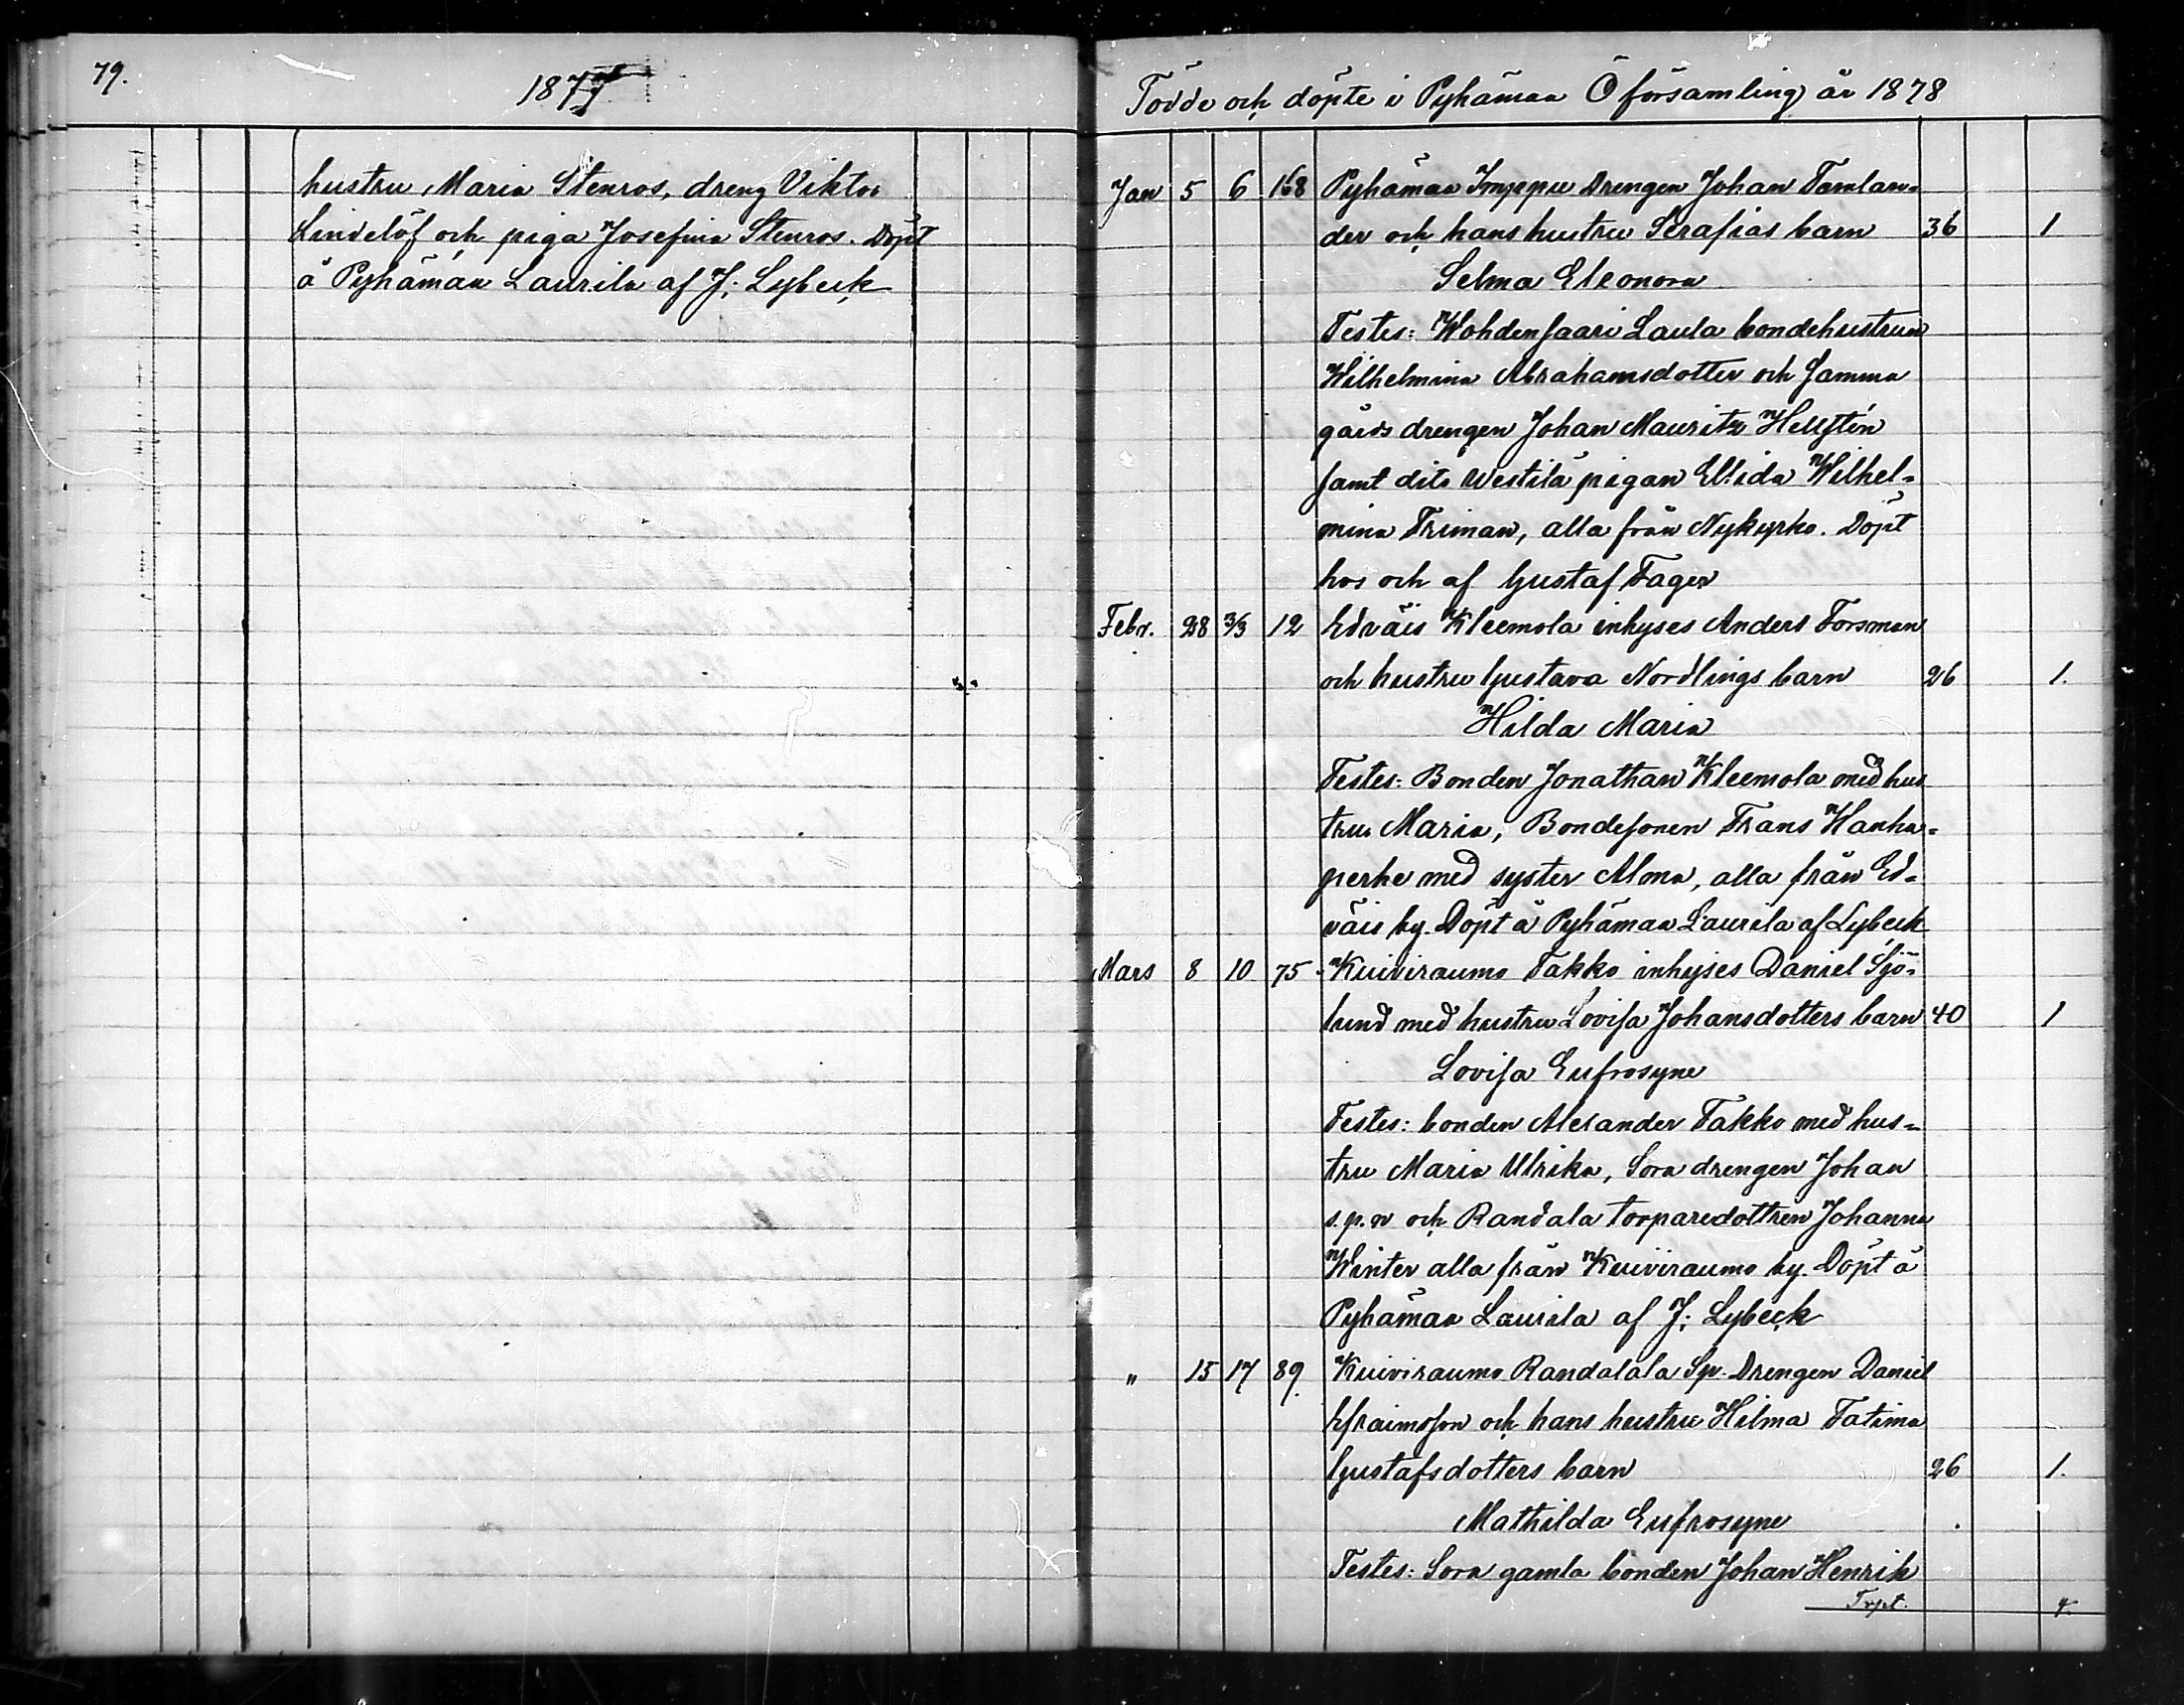 79.
1877
hustru Maria Stenros, dreng Viktor
Lindelöf och piga Josefina Stenros. Döpt
å Pyhämaa Laurila af J. Lybeck
Födde och döpte i Pyhämaa Ö församling år 1878
Jan 5 6 168 Pyhämaa Imppu Drengen Johan Tamlan-
der och hans hustru Serafias barn 36 1
Selma Eleonora
Testes: Wohdensaari Laula bondehustrun
Wilhelmina Abrahamsdotter och samma
gårds drengen Johan Mauritz Hellstén
samt dito Westilä pigan Elida Wilhel-
mina Friman, alla från Nykyrko. Döpt
hos och af Gustaf Fager
Febr. 28 3/3 12 Edväis Kleemola inhyses Anders Forsman
och hustru Gustava Nordlings barn 26 1.
Hilda Maria
Testes: Bonden Jonathan Kleemola med hus
tru Maria, Bondesonen Frans Hanka-
perke med syster Alma, alla från Ed-
väis by. Döpt å Pyhämaa Laurila af Lybeck
Mars 8 10 75 Kuiviraumo Takko inhyses Daniel Sjö-
lund med hustru Lovisa Johansdotters barn 40 1
Lovisa Eufrosyne
Testes: bonden Alexander Takko med hus-
tru Maria Ulrika, Sora drengen Johan
s.p.n och Randala torparedottren Johanna
Winter alla från Kuiviraumo by. Döpt å
Pyhämaa Laurila af J. Lybeck
" 15 17 89. Kuiviraumo Randalala Sp. Drengen Daniel
Efraimsson och hans hustru Hilma Fatima
Gustafsdotters barn 26 1.
Mathilda Eufrosyne
Testes: Sora gamla bonden Johan Henrik
Trpt. 4.